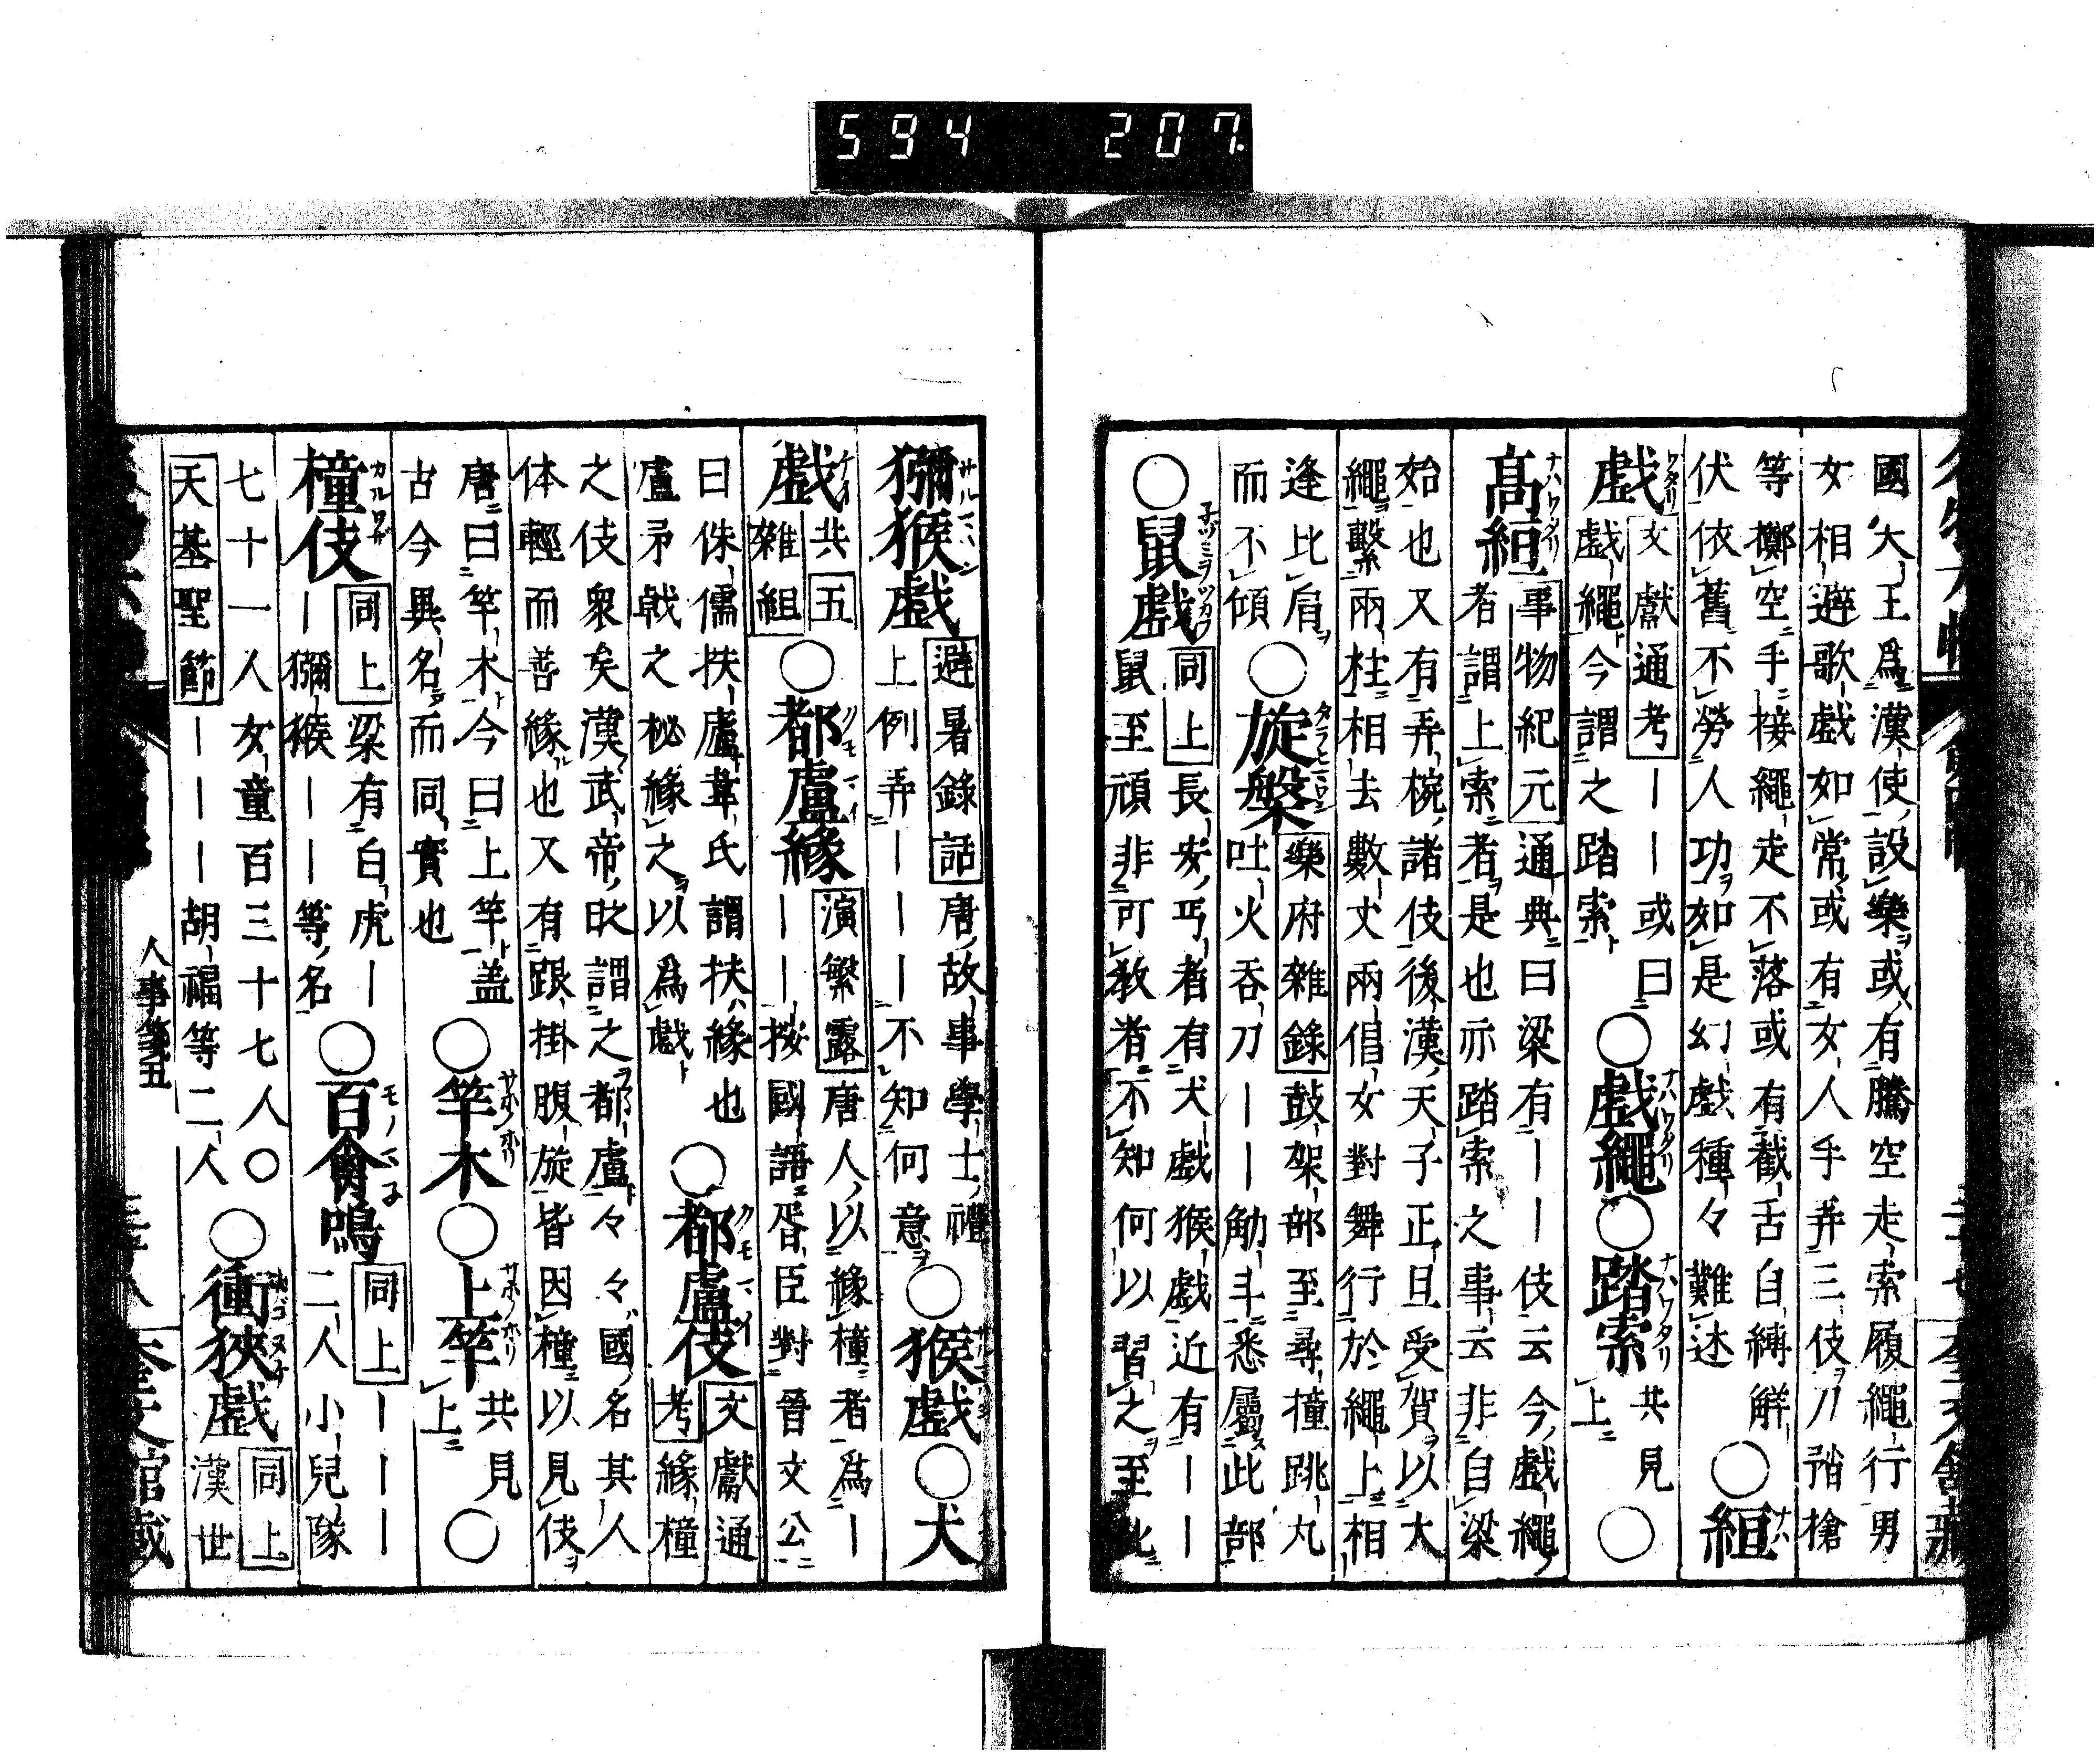 594 207
國大王爲漢使設樂或有騰空走索履繩行男
女相避歌戲如常或有女人手弄三伎刀矟槍
等擲空手接繩走不落或有截舌自縛解
伏依舊不勞人功如是幻戲種々難述
○絙
戲
文獻通考｜｜或曰
戲繩今謂之踏索
○戲繩○踏索
共見
上
○
高絙
事物紀元通典曰梁有｜｜伎云今戲繩
者謂上索者是也亦踏索之事云非自梁
始也又有弄椀諸伎後漢天子正旦受賀以大
繩繫兩柱相去數丈兩倡女對舞行於繩上相
逢比肩
而不傾
○旋槃
樂府雜錄鼓架部至尋撞跳丸
吐火吞刀｜｜觔斗悉屬此部
○鼠戲
同上長安丐者有犬戲猴戲近有｜｜
鼠至頑非可敎者不知何以習之至此
獼猴戲
避暑錄話唐故事學士禮
上例弄｜｜｜不知何意
○猴戲○犬
戲
共五
雜組
○都盧緣
演繁露唐人以緣橦者爲｜
｜｜按國語胥臣對晉文公
曰侏儒扶廬韋氏謂扶緣也
盧矛戟之柲緣之以爲戲
○都盧伎
文獻通
考緣橦
之伎衆矣漢武帝時謂之都盧々々國名其人
体輕而善緣也又有跟掛腹旋皆因橦以見伎
唐曰竿木今曰上竿盖
古今異名而同實也
○竿木○上竿
共見
上
○
橦伎
同上梁有白虎｜
｜獼猴｜｜等名
○百禽鳴
同上｜｜｜
二人小兒隊
七十一人女童百三十七人○
天基聖節｜｜｜胡福等二人
○衝狹戲
同上
漢世
人事等五